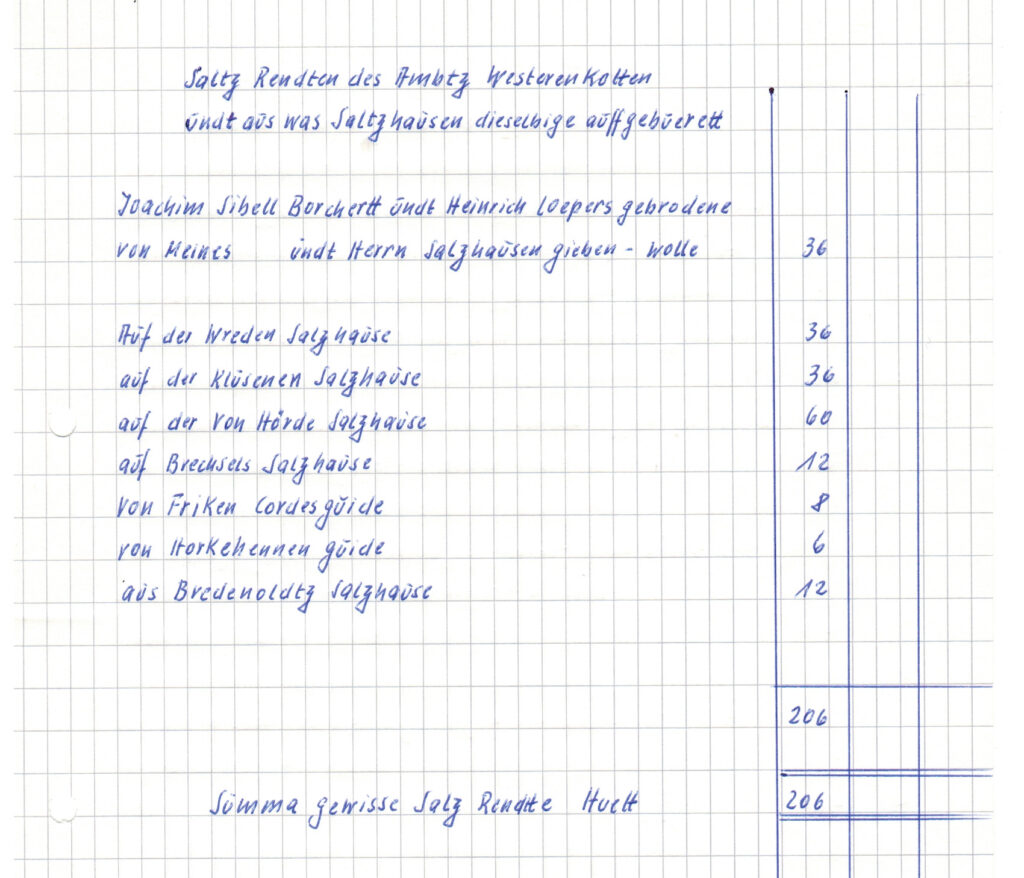 Saltz Rendten des Ambtz Westerenkotten
undt aus was Saltzhausen dieselbige auffgebuerett
Joachim Sibell Borchertt undt Heinrich Loepers gebrodene
von Meines undt Herrn Salzhausen gieben - wolle 36
Auf der Wreden Salzhause 36
auf der Klusenen Salzhause 36
auf der von Hörde Salzhause 60
auf Brechsels Salzhause 12
von Friken Cordesguide 8
von Horkehennen guide 6
aus Bredenoldtz Salzhause 12
206
Summa gewisse Salz Rendtte Huett 206